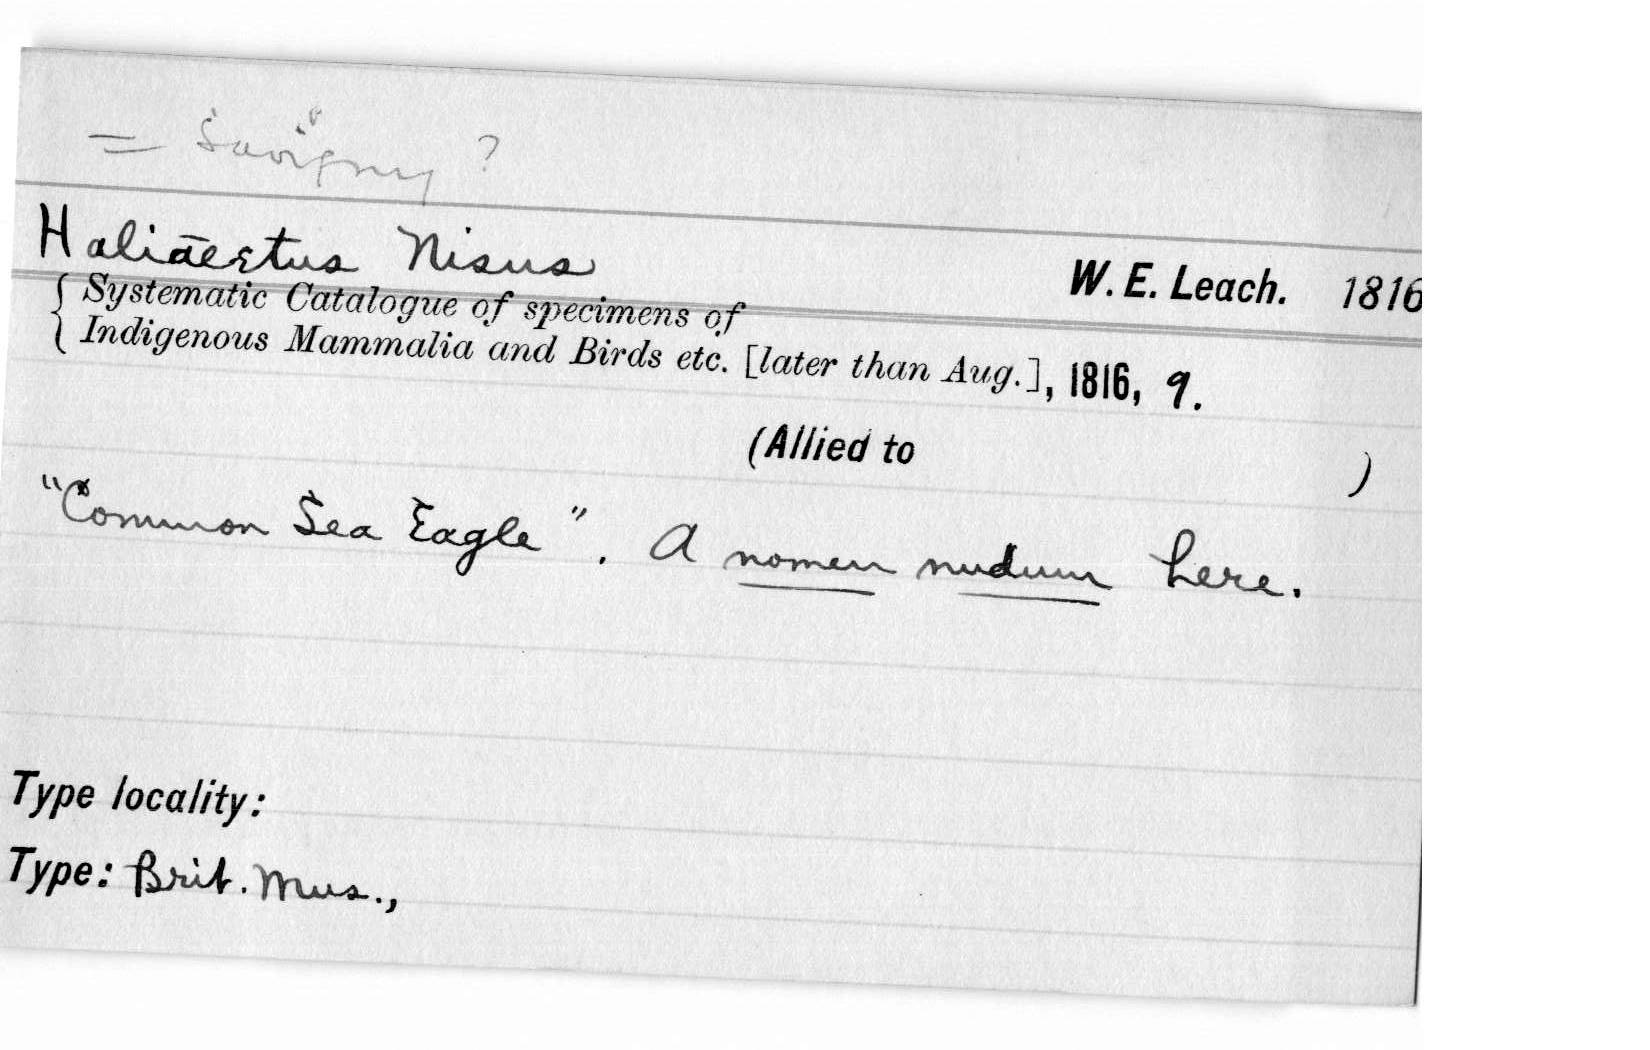 = Savigny ?
Haliäeetus Nisus
W. E. Leach. 1816
Systematic Catalogue of specimens of
Indigenous Mammalia and Birds etc. [later than Aug.], 1816, 9.
(Allied to )
"Common Sea Eagle". A nomen nudum here.
Type locality:
Type: Brit. Mus.,